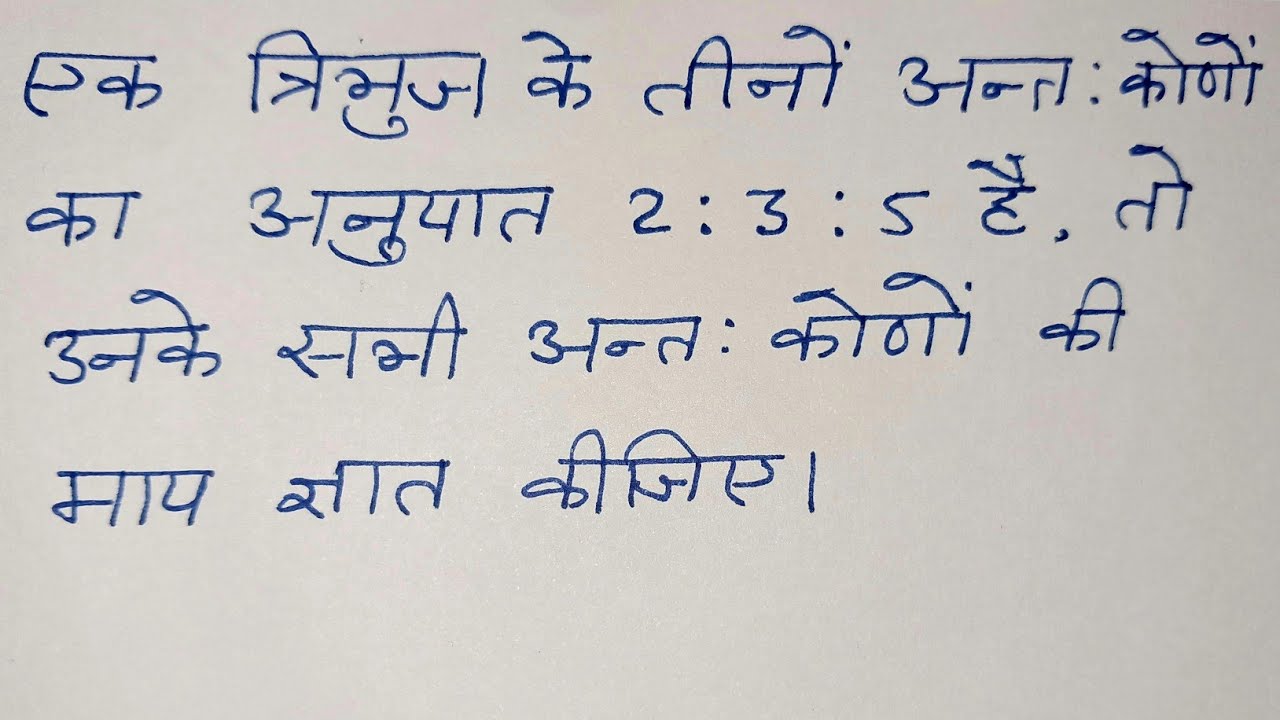 एक त्रिभुज के तीनों अन्त: कोणों
का अनुपात 2 : 3 : 5 है, तो
उनके सभी अन्त: कोणों की
माप ज्ञात कीजिए।